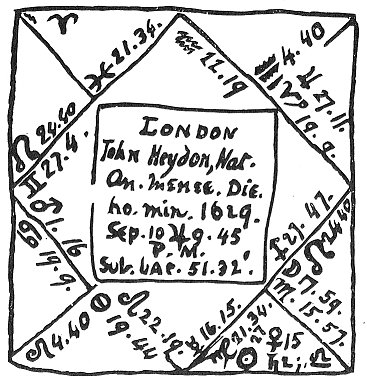 ♈
♓ 21.34.
♒ 22.19
4.40
♑
27.11.
19.9.
24.40
♊ 27.4.
♂ 1.16
♋ 19.9.
LONDON
John Heydon, Nat.
An. mense. Die.
ho. min. 1629.
Sep. 10 ♃ 9. 45
P. M.
Sub. LAP. 51.32'
27.47.
4.40
15.57.
♌ 4.40
19.44
♌ 22.19.
16.15.
♍ 21.34.
27
☉
♀ 15
♎